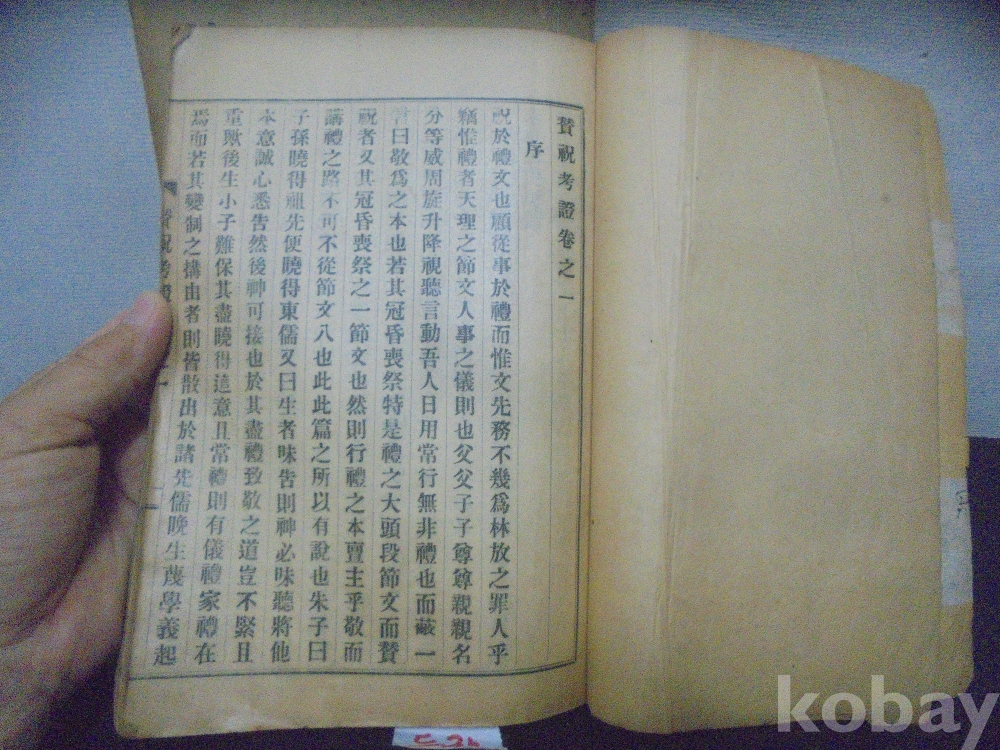 賛祝考證卷之一
序
祝於禮文也顧從事於禮而惟文先務不幾爲林放之罪人乎
竊惟禮者天理之節文人事之儀則也父父子子尊尊親親名
分等威周旋升降視聽言動吾人日用常行無非禮也而蔽一
言曰敬爲之本也若其冠昏喪祭特是禮之大頭段節文而賛
祝者又其冠昏喪祭之一節文也然則行禮之本亶主乎敬而
講禮之路不可不從節文入也此此篇之所以有說也朱子曰
子孫曉得祖先便曉得東儒又曰生者昧告則神必昧聽將他
本意誠心悉告然後神可接也於其盡禮致敬之道豈不緊且
重歟後生小子雖保其盡曉得這意且常禮則有儀禮家禮在
焉而若其變制之搆出者則皆散出於諸先儒晩生蔑學義起
賛祝考證
一
kobay